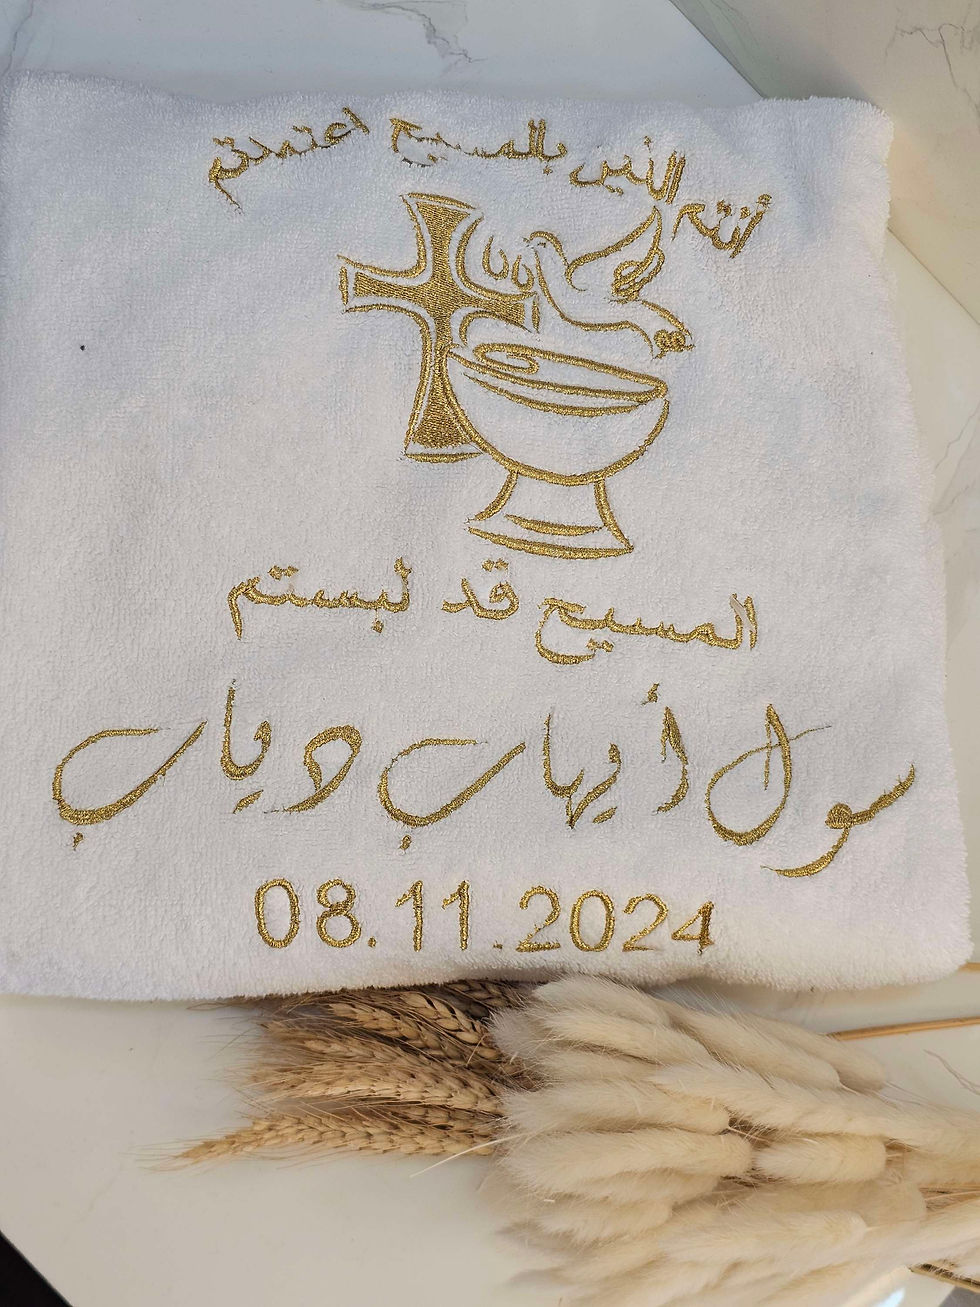 أنتم الذين بالمسيح اعتمدتم
المسيح قد لبستم
سولا أيهاب دياب
08.11.2024